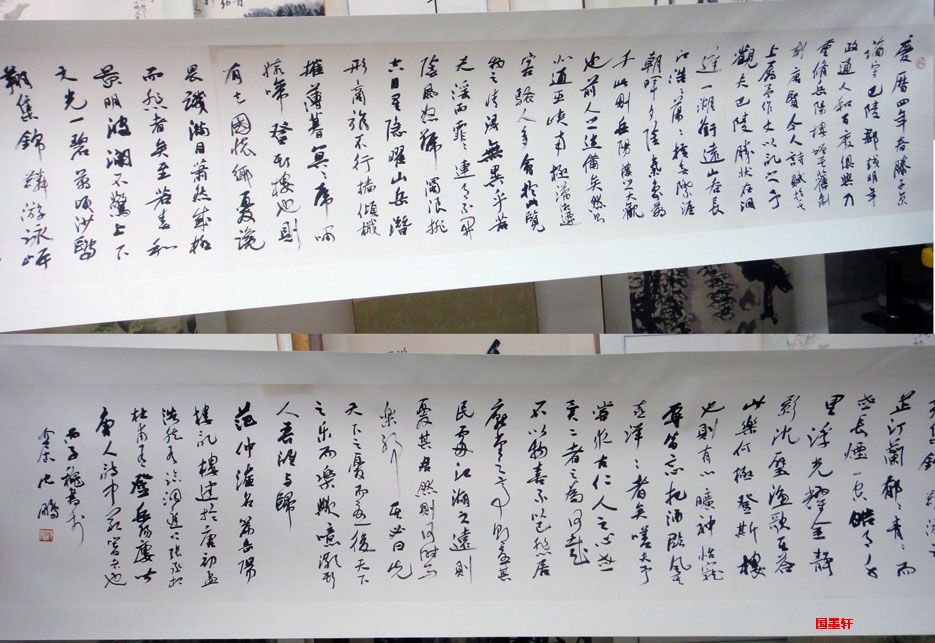 慶曆四年春滕子京
謫守巴陵郡越明年
政通人和百廢俱興乃
重修岳陽樓增其舊制
刻唐賢今人詩賦於其
上屬予作文以記之予
觀夫巴陵勝狀在洞
庭一湖銜遠山吞長
江浩浩湯湯橫無際涯
朝暉夕陰氣象萬
千此則岳陽樓之大觀
也前人之述備矣然則
北通巫峽南極瀟湘遷
客騷人多會於此覽
物之情得無異乎若
夫淫雨霏霏連月不開
陰風怒號濁浪排
空日星隱曜山岳潛
形商旅不行檣傾楫
摧薄暮冥冥虎嘯
猿啼登斯樓也則
有去國懷鄉憂讒
畏譏滿目蕭然感極
而悲者矣至若春和
景明波瀾不驚上下
天光一碧萬頃沙鷗
翔集錦鱗游泳岸
芷汀蘭郁郁青青而
或長煙一空皓月千
里浮光耀金靜
影沈璧漁歌互答
此樂何極登斯樓
也則有心曠神怡寵
辱皆忘把酒臨風其
喜洋洋者矣嗟夫予
嘗求古仁人之心或
異二者之為何哉
不以物喜不以己悲居
廟堂之高則憂其
民處江湖之遠則
憂其君然則何時而
樂耶其必曰先
天下之憂而憂後天下
之樂而樂歟噫微斯
人吾誰與歸
范仲淹名篇岳陽
樓記樓建於唐初孟
浩然有臨洞庭上張丞相
杜甫有登岳陽樓皆
唐人詩中也
丙子
沈鵬
国墨轩